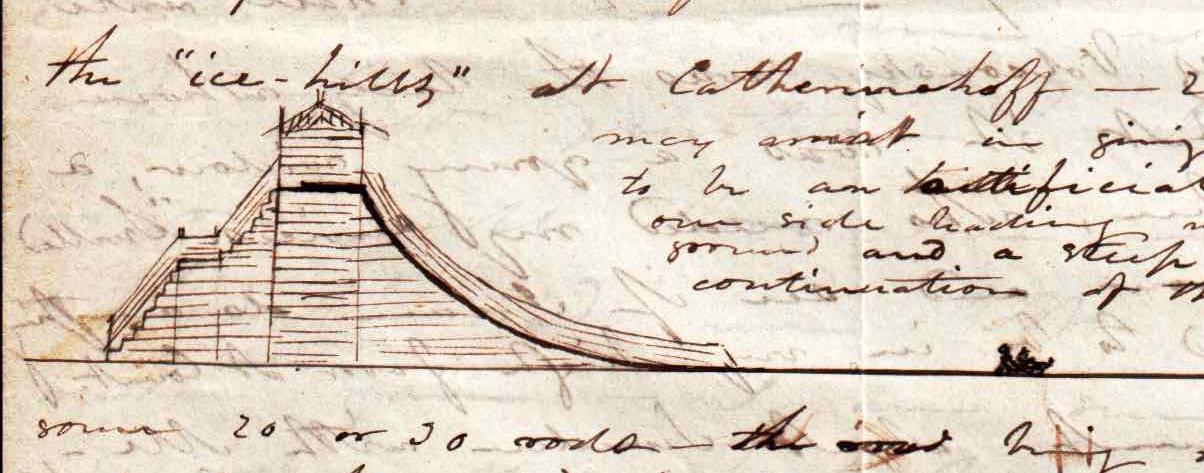 the "ice-hills" at Catherinehoff —
may assist in giving
to be an artificial
one side leading
ground and a steep
continuation of th
some 20 or 30 rods — the being